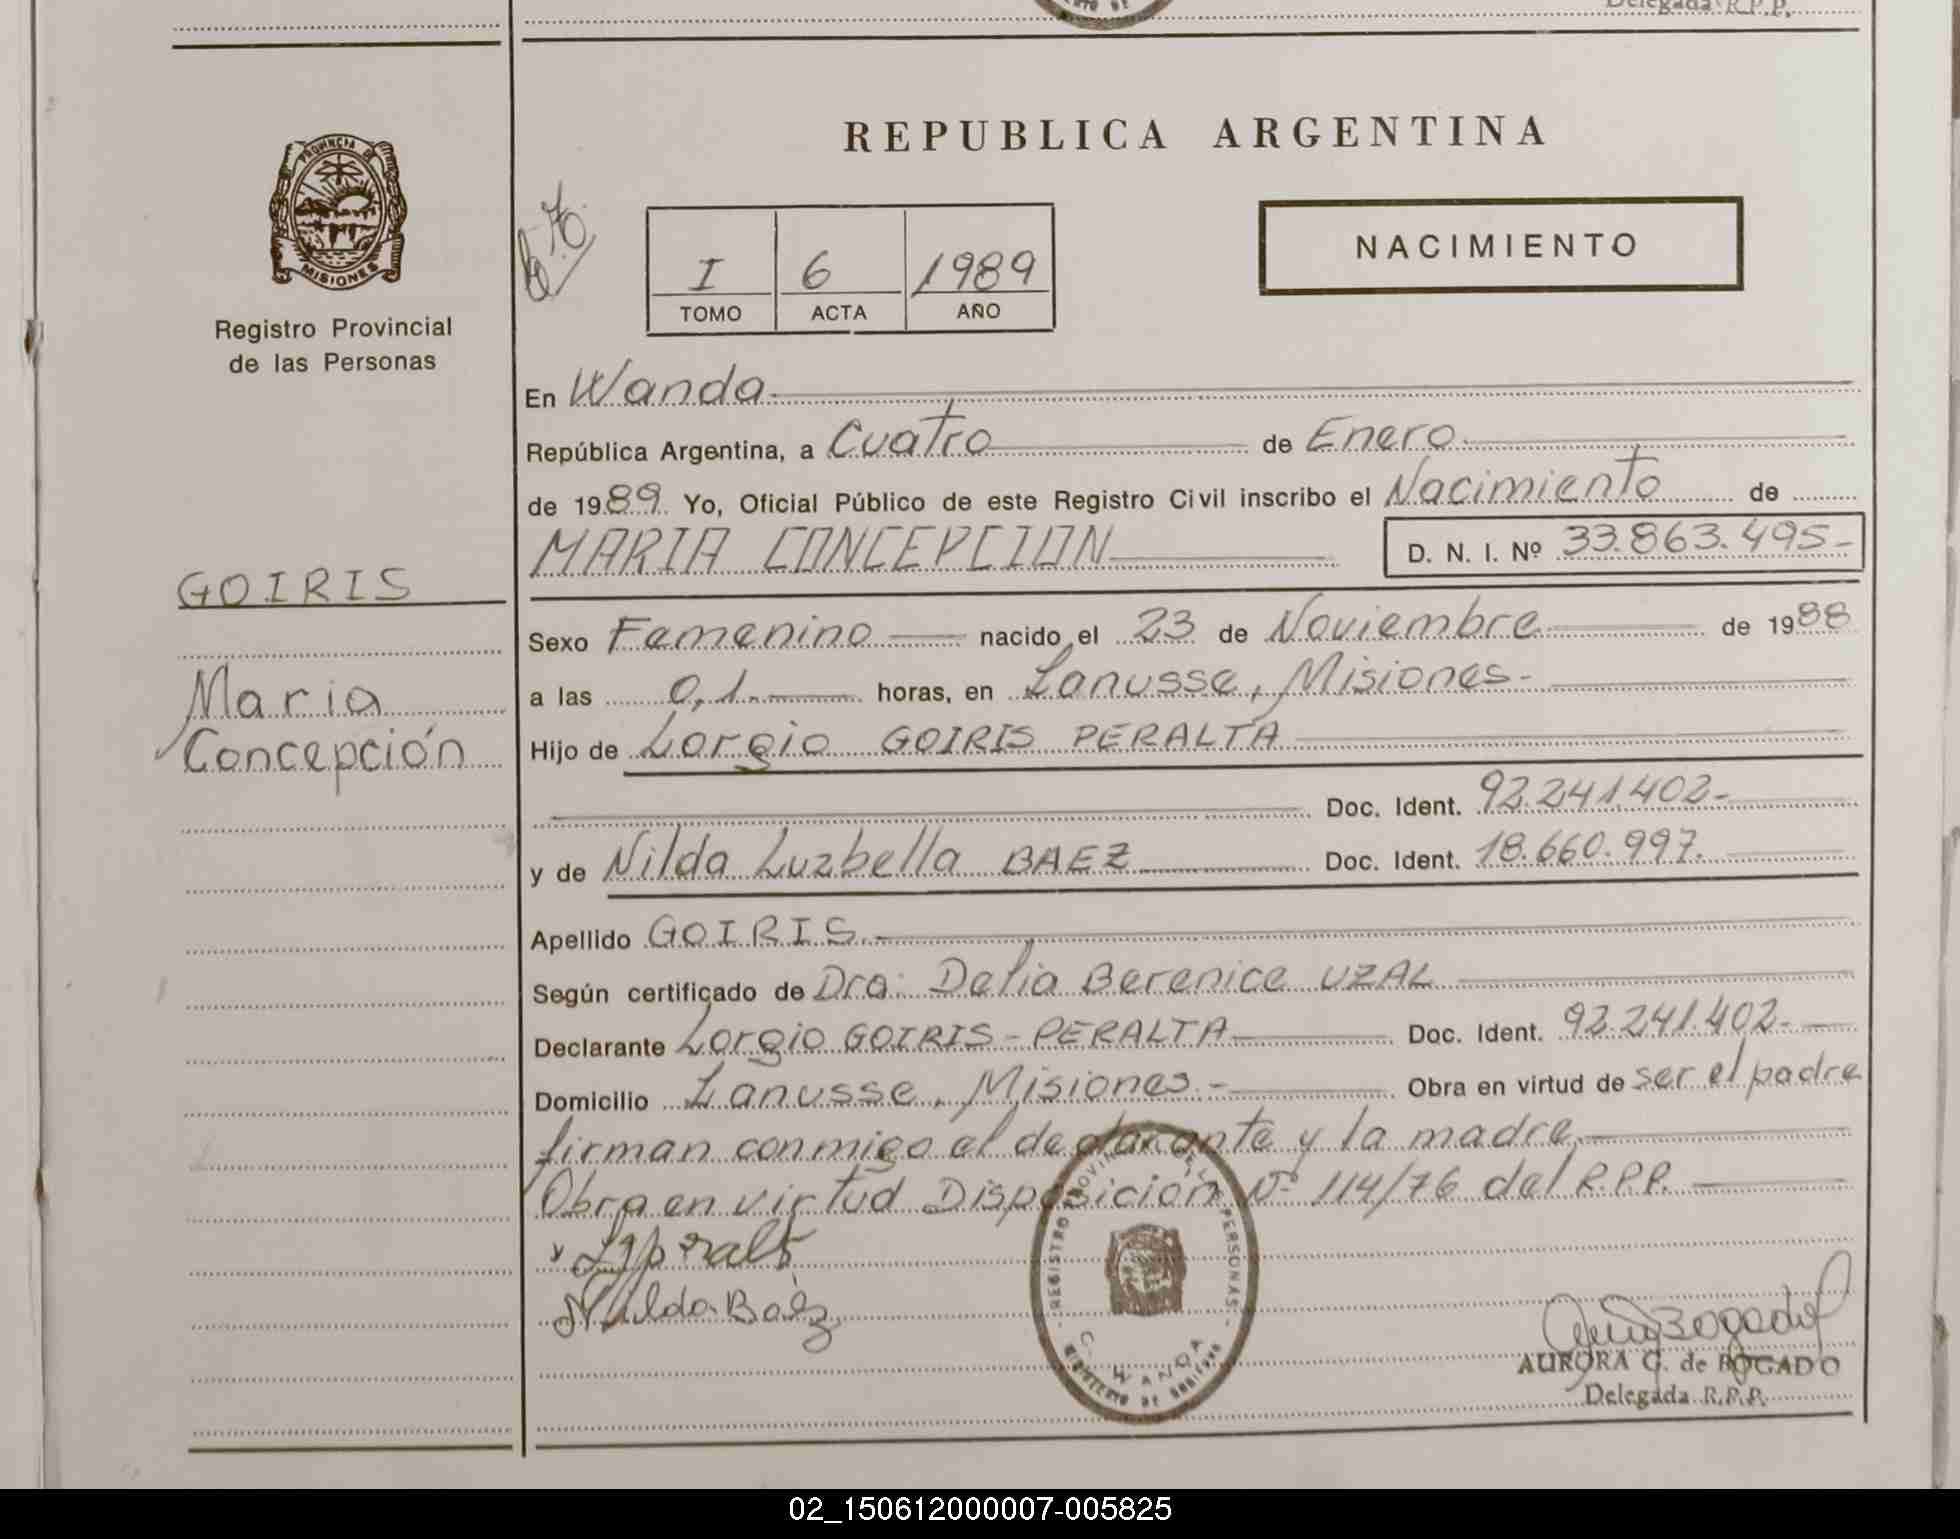 Delegada R.P.P.
PROVINCIA DE
MISIONES
Registro Provincial
de las Personas
GOIRIS
Maria
Concepción
REPUBLICA ARGENTINA
NACIMIENTO
I 6 1989
TOMO ACTA AÑO
En Wanda
República Argentina, a Cuatro de Enero
de 1989 Yo, Oficial Público de este Registro Civil inscribo el Nacimiento de
MARIA CONCEPCION D. N. I. Nº 33.863.495-
Sexo Femenino nacido el 23 de Noviembre de 1988
a las 0,1.- horas, en Lanusse, Misiones.-
Hijo de Lorgio GOIRIS PERALTA
Doc. Ident. 92.241.402-
y de Nilda Luzbella BAEZ Doc. Ident. 18.660.997.
Apellido GOIRIS.-
Según certificado de Dra: Delia Berenice UZAL
Declarante Lorgio GOIRIS-PERALTA Doc. Ident. 92.241.402-
Domicilio Lanusse, Misiones.- Obra en virtud de ser el padre
firman conmigo el declarante y la madre
Obra en virtud Disposición Nº 114/76 del R.P.P.
Nilda Baéz
REGISTRO PROVINCIAL DE LAS PERSONAS
WANDA
MINISTERIO DE GOBIERNO
AURORA G. de BOGADO
Delegada R.P.P.
02_150612000007-005825